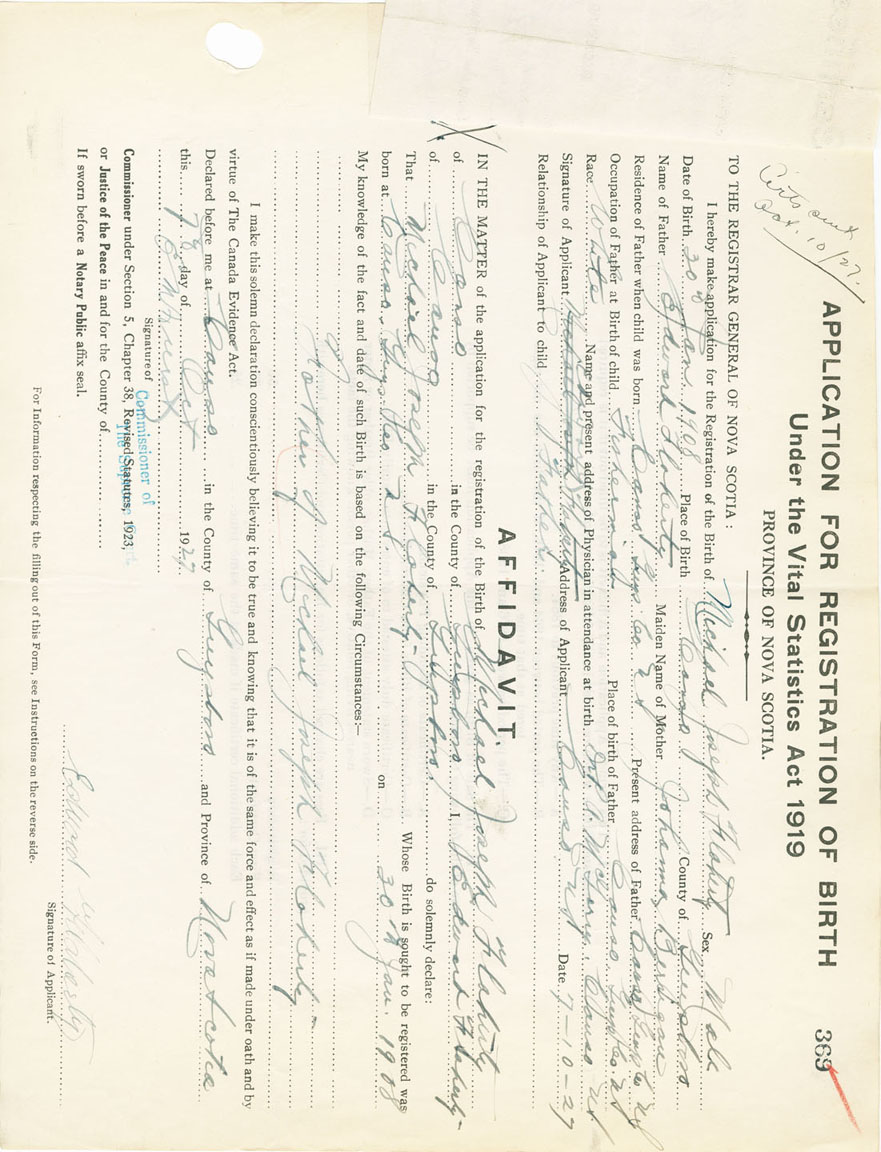 APPLICATION FOR REGISTRATION OF BIRTH
369
Under the Vital Statistics Act 1919
PROVINCE OF NOVA SCOTIA.
Oct. 10/27.
TO THE REGISTRAR GENERAL OF NOVA SCOTIA :
I hereby make application for the Registration of the Birth of Michael Joseph Flaherty Sex Male
Date of Birth 20th Jan. 1908 Place of Birth Canso County of Guysboro
Name of Father Edward Flaherty Maiden Name of Mother Johanna
Residence of Father when child was born Canso Guys Co N S Present address of Father Canso
Occupation of Father at Birth of child Fisherman Place of birth of Father Canso
Race White Name and present address of Physician in attendance at birth Canso N S
Signature of Applicant Address of Applicant Canso N S Date 7-10-27
Relationship of Applicant to child Father
AFFIDAVIT.
IN THE MATTER of the application for the registration of the Birth of Michael Joseph Flaherty
of Canso in the County of Guysboro I, Edward Flaherty
of Canso in the County of Guysboro do solemnly declare:
That Michael Joseph Flaherty Whose Birth is sought to be registered was
born at Canso, Guys Co N S. on 20th Jan. 1908
My knowledge of the fact and date of such Birth is based on the following Circumstances:—
Father of Michael Joseph Flaherty
I make this solemn declaration conscientiously believing it to be true and knowing that it is of the same force and effect as if made under oath and by
virtue of The Canada Evidence Act.
Declared before me at Canso in the County of Guysboro and Province of Nova Scotia
this 7th day of Oct 1927
Signature of
Commissioner of
Commissioner under Section 5, Chapter 38, Revised Statutes, 1923,
or Justice of the Peace in and for the County of
If sworn before a Notary Public affix seal.
Edward Flaherty
Signature of Applicant.
For Information respecting the filling out of this Form, see Instructions on the reverse side.